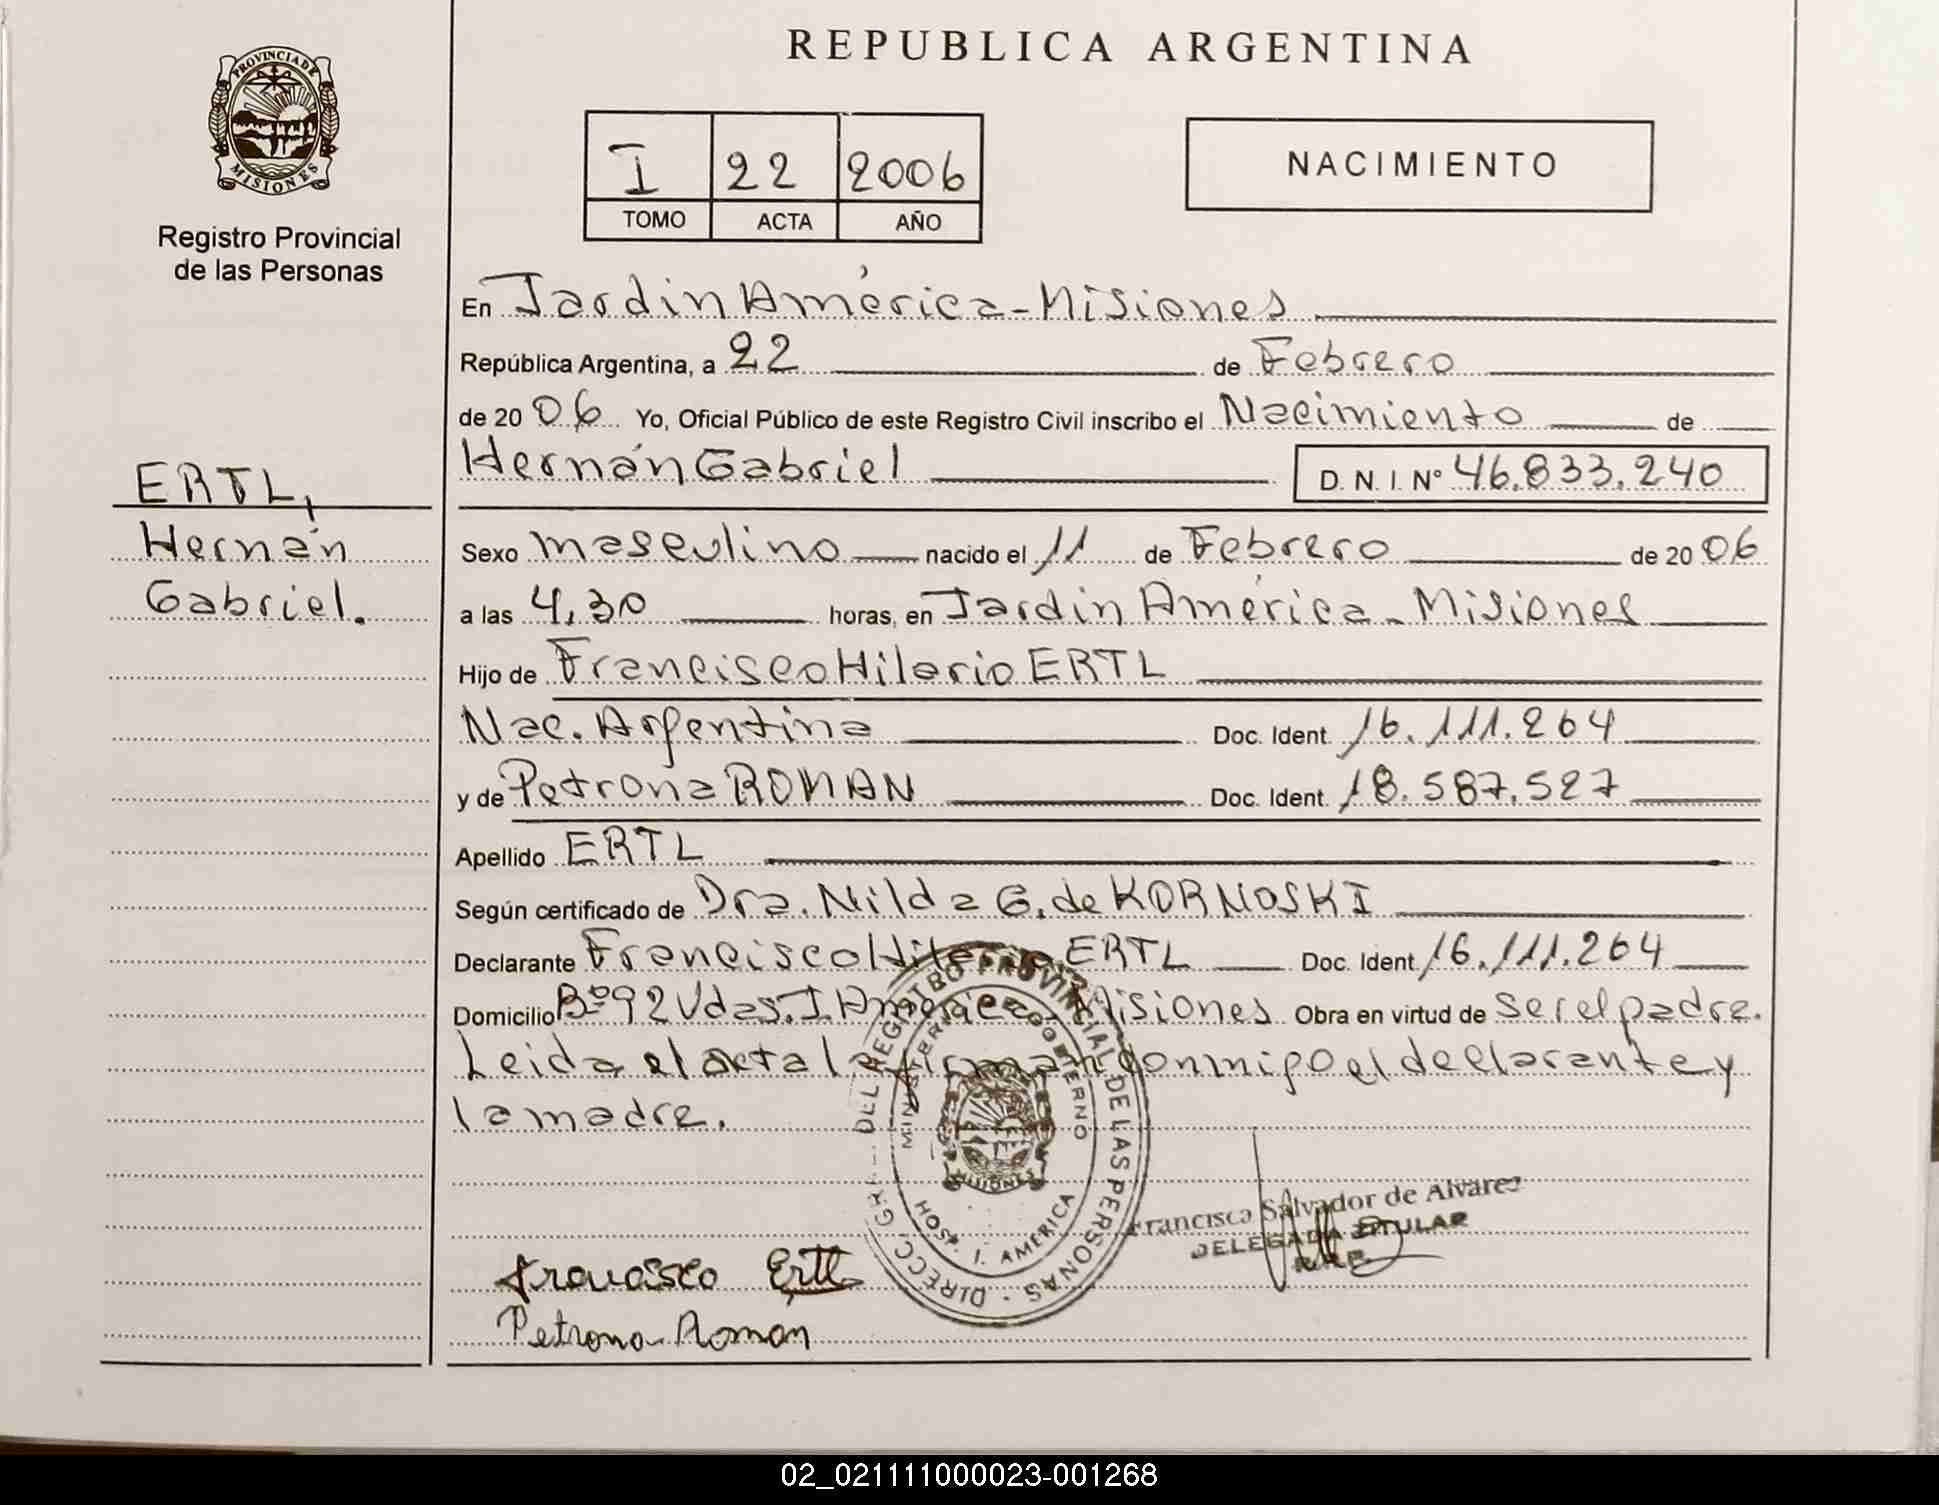 REPUBLICA ARGENTINA
PROVINCIA DE MISIONES
Registro Provincial
de las Personas
I 22 2006
TOMO ACTA AÑO
NACIMIENTO
En Jardin América - Misiones
República Argentina, a 22 de Febrero
de 2006 Yo, Oficial Público de este Registro Civil inscribo el Nacimiento de
Hernán Gabriel D. N. I. Nº 46.833.240
ERTL,
Hernán
Gabriel.
Sexo masculino nacido el 11 de Febrero de 2006
a las 4,30 horas, en Jardin América - Misiones
Hijo de Francisco Hilario ERTL
Nac. Argentina Doc. Ident. 16.111.264
y de Petrona ROMAN Doc. Ident. 18.587.527
Apellido ERTL
Según certificado de Dra. Nilda G. de KORNOSKI
Declarante Francisco Hilario ERTL Doc. Ident. 16.111.264
Domicilio Bº 92 Vdas. J. América Misiones Obra en virtud de ser el padre.
Leida el acta la firman conmigo el declarante y
la madre.
DIRECC. GRAL. DEL REGISTRO PROVINCIAL DE LAS PERSONAS
MINISTERIO DE GOBIERNO
MISIONES
HOSP. J. AMERICA
Francisca Salvador de Alvarez
DELEGADA TITULAR
R.P.P.
Francisco Ertl
Petrona Román
02_021111000023-001268